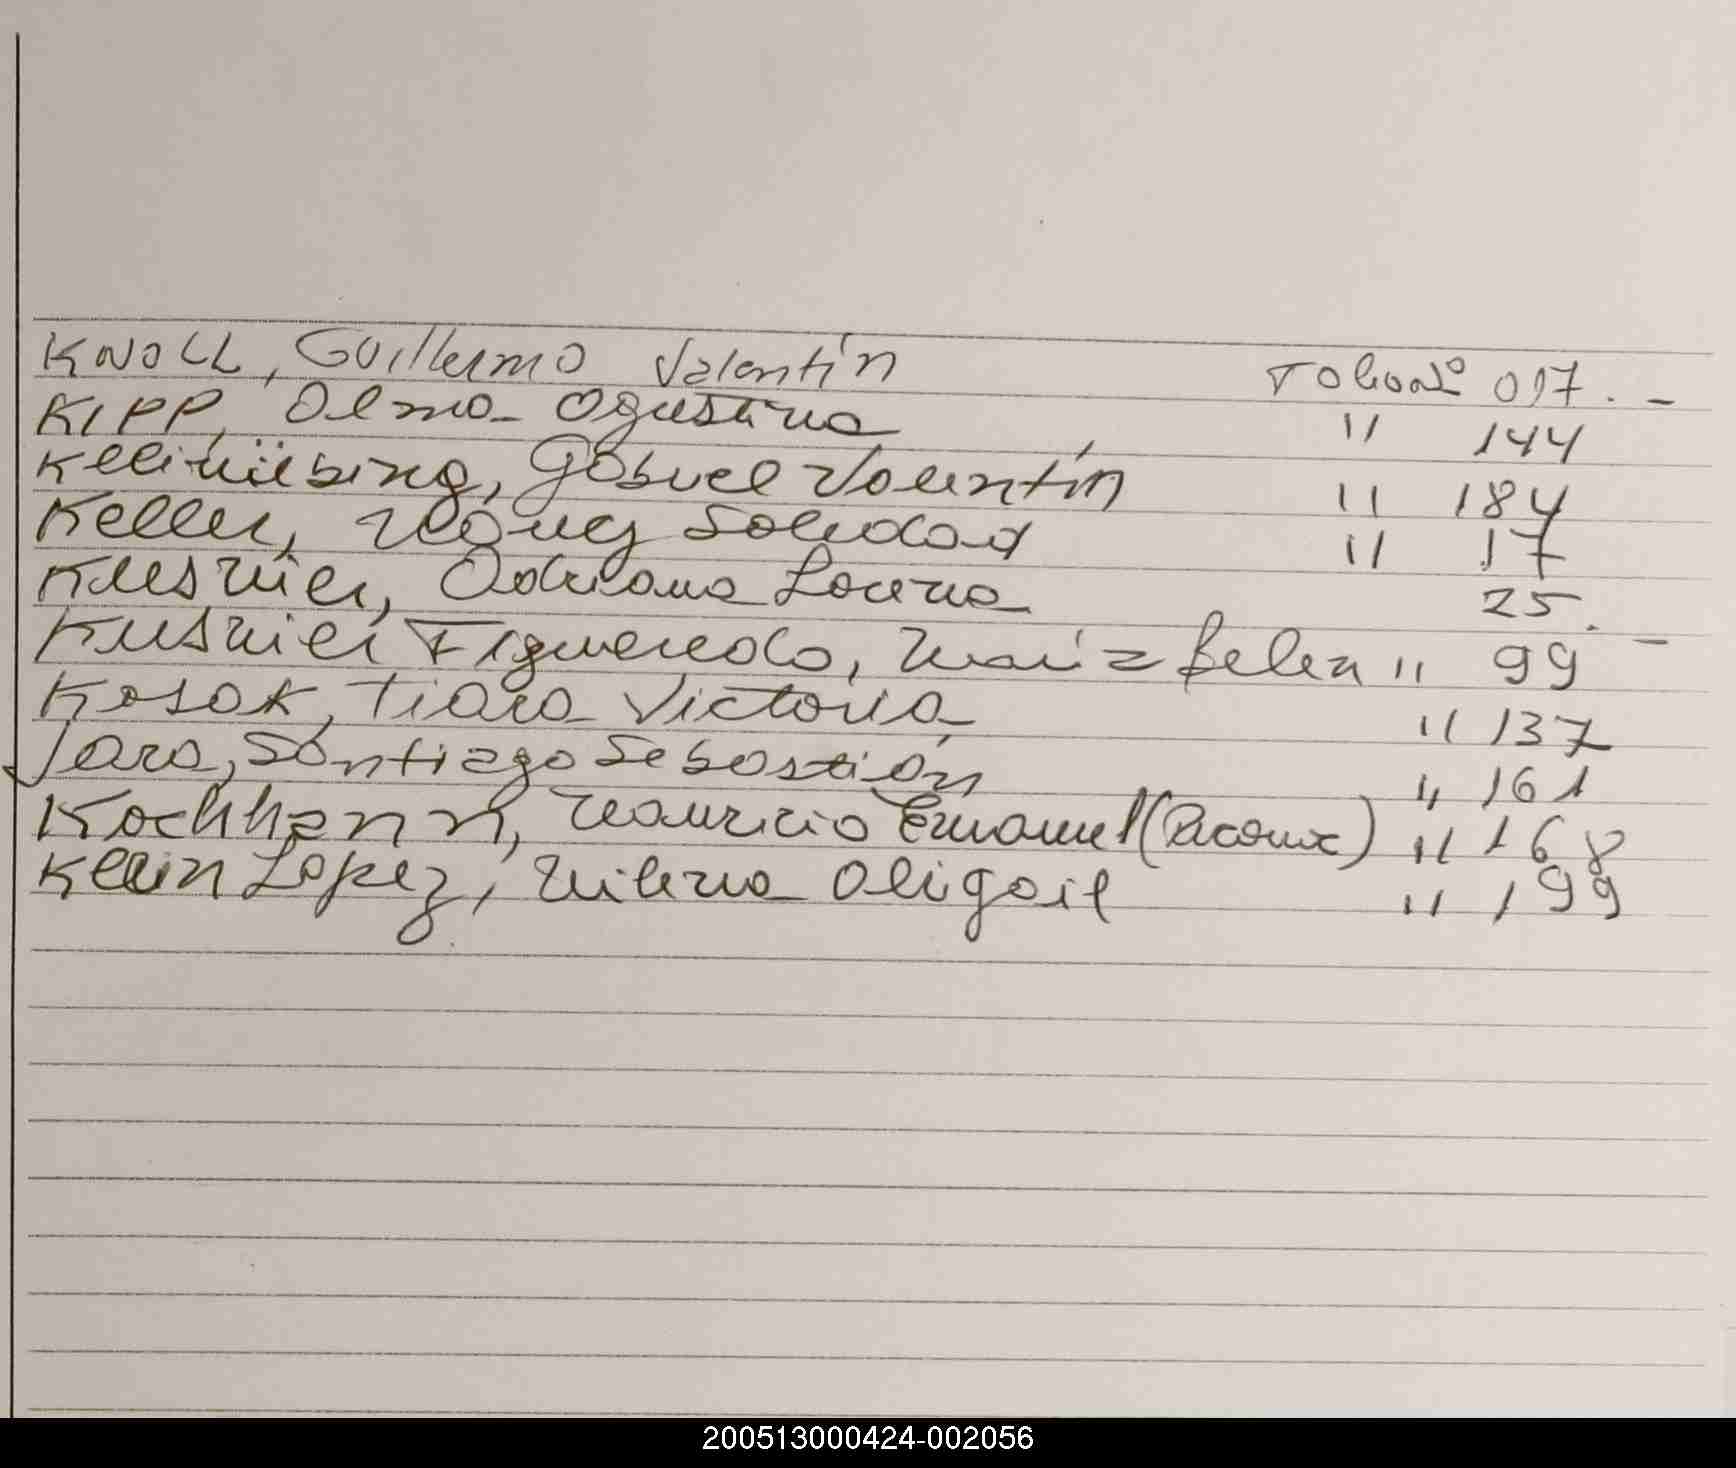 KNOLL, Guillermo Valentín Folio Nº 017. -
KIPP, Alma Agustina " 144
Gabriel Valentín " 184
Keller, Nancy Soledad " 17
Kusnier, Adriana Lorena 25. -
Kusnier Figueredo, María Belen " 99
Kosak, Tiara Victoria " 137
Jara, Santiago Sebastián " 161
Kochhann, Mauricio Emanuel " 168
Klein Lopez, Milena Abigail " 199
200513000424-002056